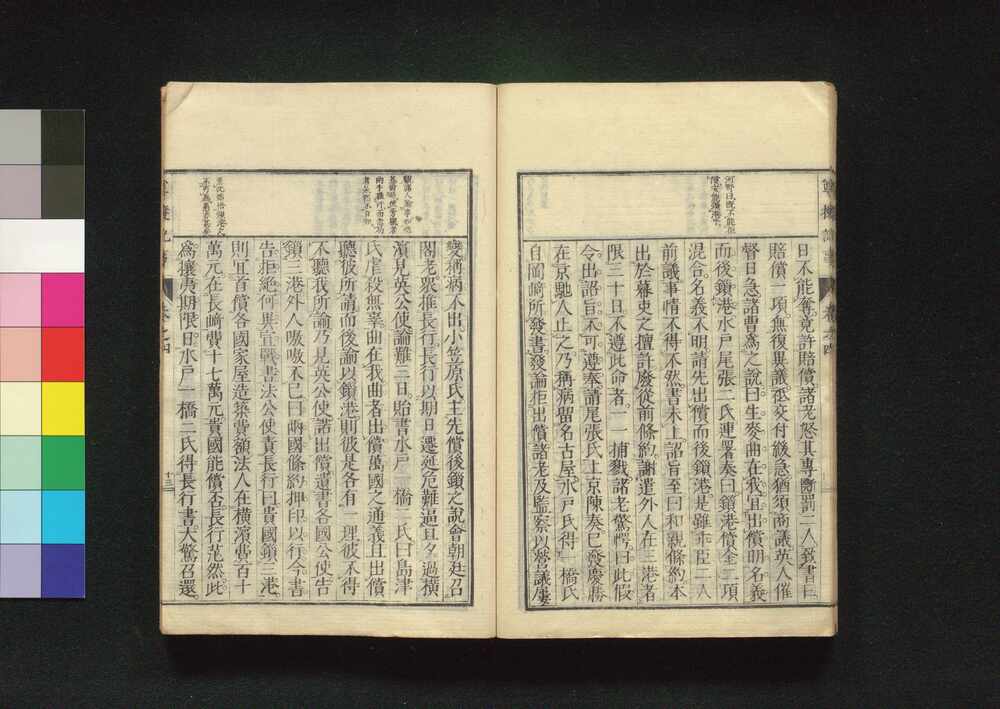 日不能奪竟許賠償諸老怒其專斷罰二人致書曰
賠償一項無復異議至交付緩急猶須商議英人催
督日急諸曹爲之說曰生麥曲在我宜出償明名義
而後鎖港水戶尾張二氏連署奏曰鎖港償金二項
混合名義不明請先出償而後鎖港是雖乖臣二人
前議事情不得不然書未上詔旨至曰和親條約本
出於幕吏之擅許廢從前條約謝遣外人在三港者
限三十日不遵此命者一一捕戮諸老驚愕曰此假
令出詔旨不可遵奉請尾張氏上京陳奏已發慶勝
在京馳人止之乃稱病留名古屋水戶氏得一橋氏
自岡崎所發書發論拒出償諸老及監察以營議屢
變稱病不出小笠原氏主先償後鎖之說會朝廷召
閣老衆推長行長行以期日遷延危難逼旦夕過橫
濱見英公使論難三日貽書水戶一橋二氏曰島津
氏虐殺無辜曲在我曲者出償萬國之通義且出償
聽彼所請而後諭以鎖港則彼是各有一理彼不得
不聽我所諭乃見英公使諾出償遺書各國公使告
鎖三港外人嗷嗷不已曰兩國條約押印以行今書
告拒絕何異宣戰書法公使責長行曰貴國鎖三港
則宜首償各國家屋造築費額法人在橫濱費百十
萬元在長崎費十七萬元貴國能償否長行茫然此
爲攘夷期限日水戶一橋二氏得長行書大驚召還
卷之四
十三